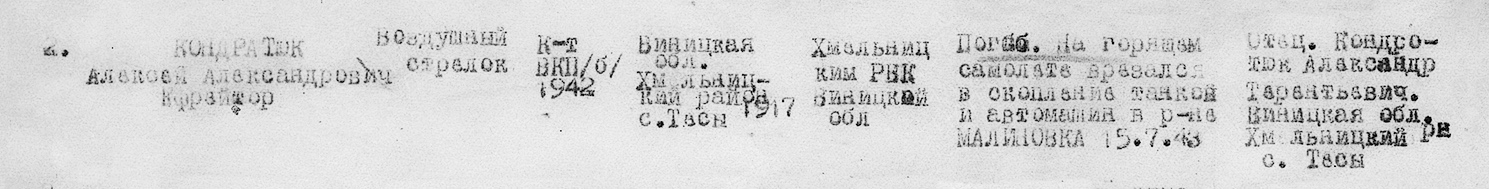 2.
КОНДРАТЮК
Алексей Александрович
Ефрейтор
Воздушный
стрелок
К-т
ВКП/б/
1942
Виницкая
обл.
Хмельниц-
кий район
с.Тесы 1917
Хмельниц
ким РВК
Виницкой
обл
Погиб. На горящем
самолете врезался
в скопление танков
и автомашин в р-не
МАЛИНОВКА 15.7.43
Отец. Кондро-
тюк Александр
Терентьевич.
Виницкая обл.
Хмельницкий рн
с. Тесы